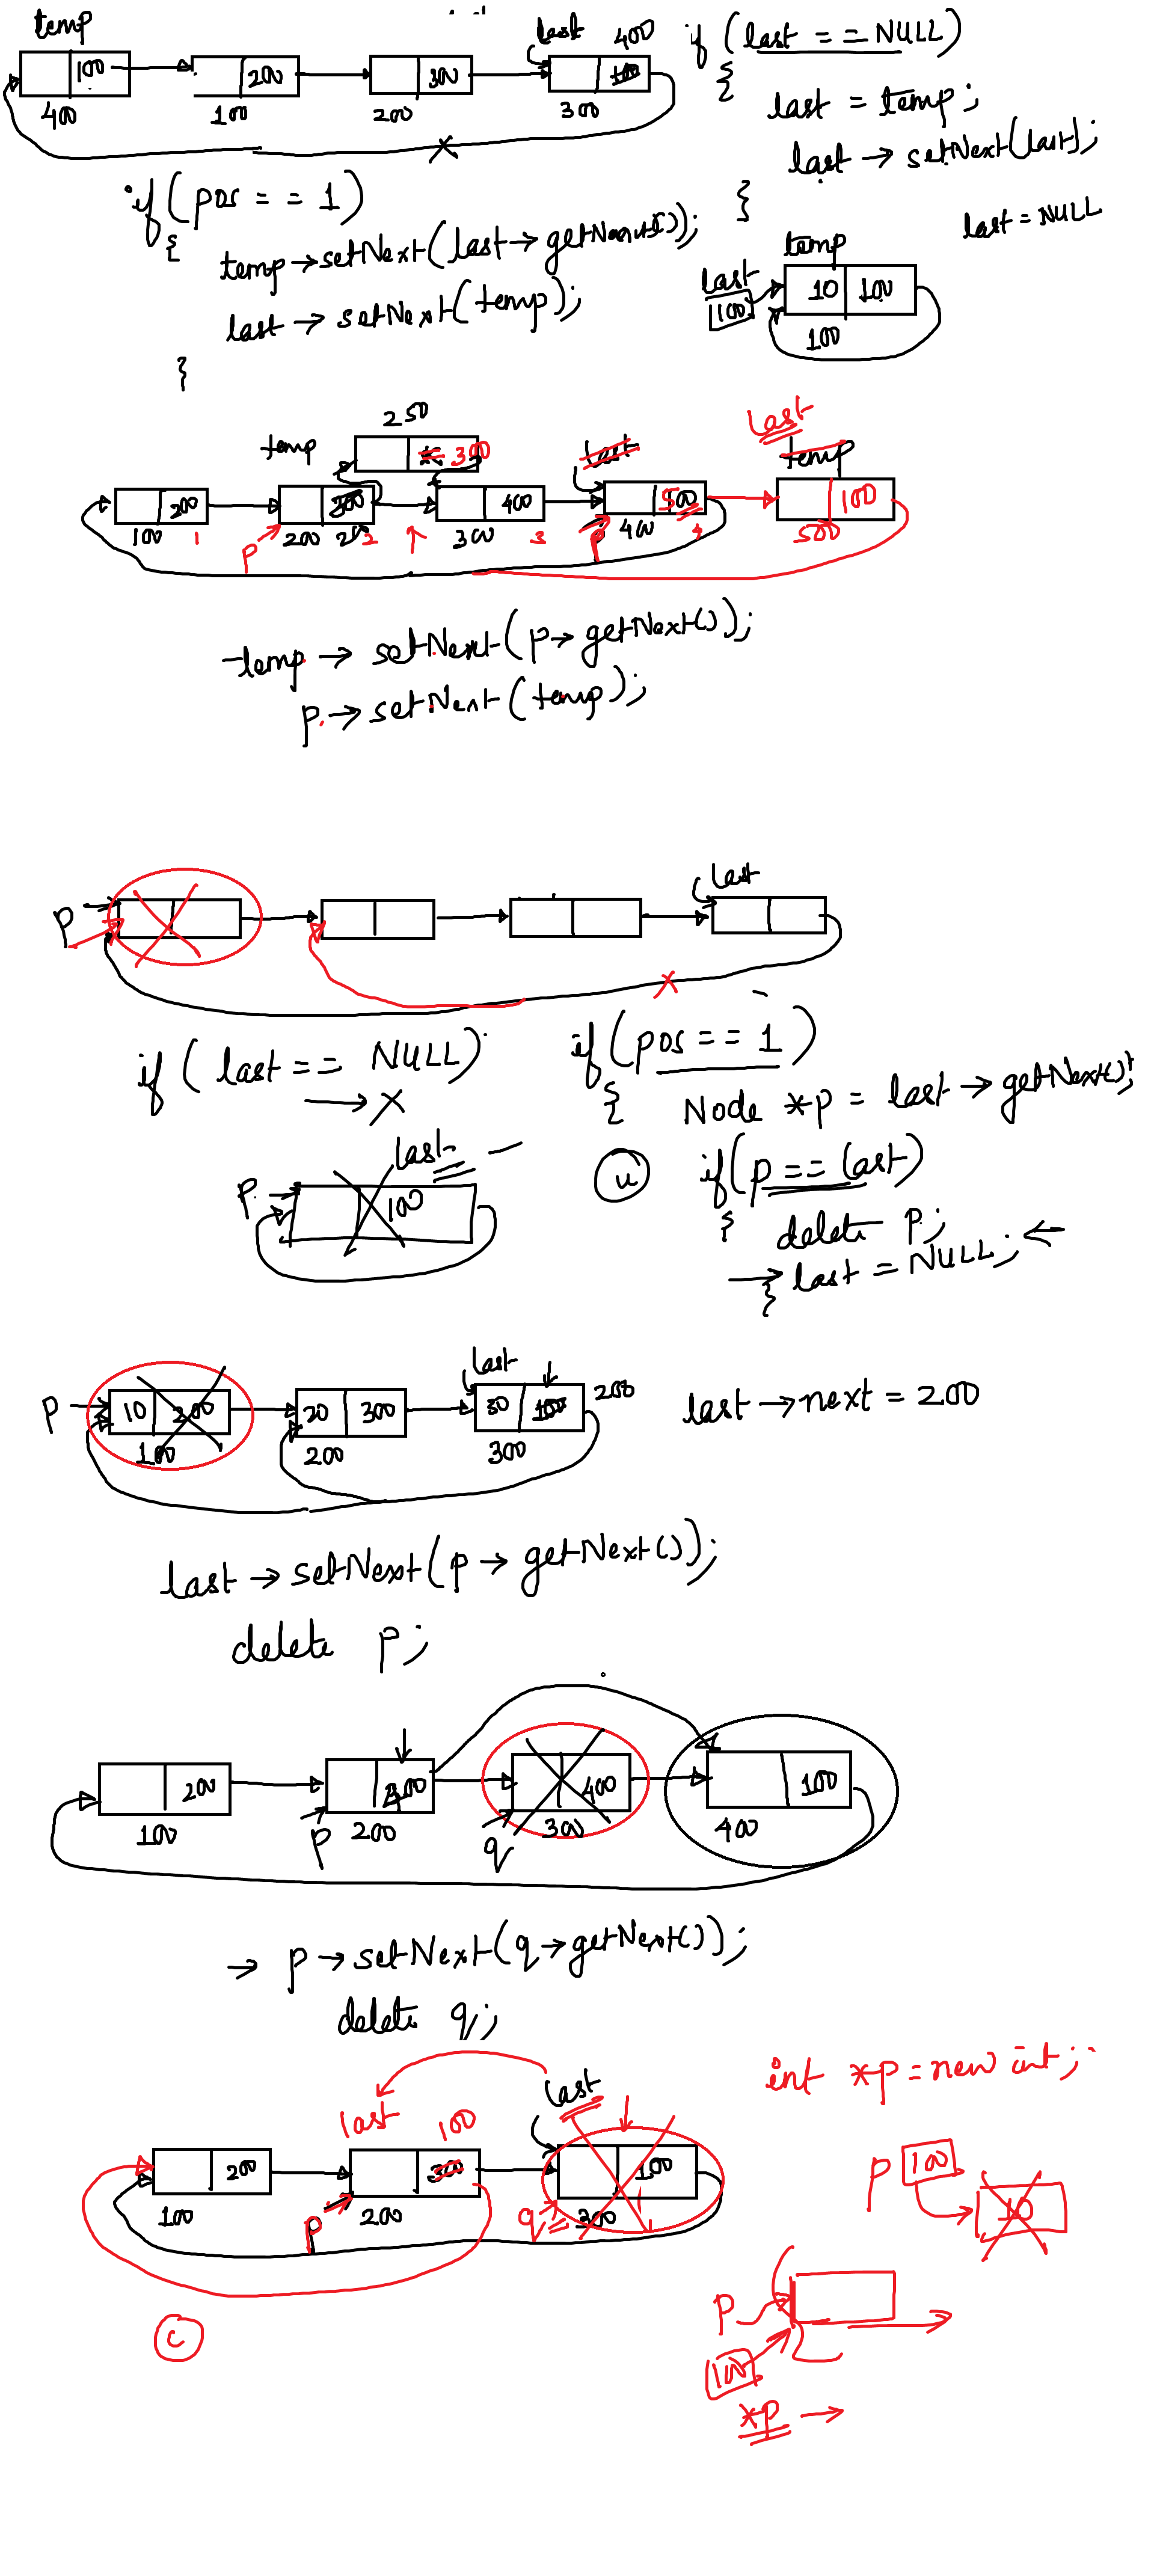 temp
last 400
100 200 300 100
400 100 200 300
if (last == NULL)
{
last = temp;
last → setNext(last);
}
last = NULL
if (pos == 1)
{
temp → setNext(last → getNext());
last → setNext(temp);
}
temp
last
100
10 100
100
250
temp 300
last
last
temp
200 300 400 500 100
100 1 200 250 2 300 3 400 4 500
p p
temp → setNext(p → getNext());
p → setNext(temp);
last
p
if (last == NULL)
→ X
if (pos == 1)
{ Node *p = last → getNext();
if (p == last)
{ delete p;
→ last = NULL; ←
}
last
p 100
u
last
p 10 200 20 300 30 100 200
100 200 300
last → next = 200
last → setNext(p → getNext());
delete p;
200 300 400 100
100 p 200 q 300 400
→ p → setNext(q → getNext());
delete q;
last
last 100
200 300 100
100 p 200 q 300
c
int *p = new int;
p 100
10
p
100
*p →